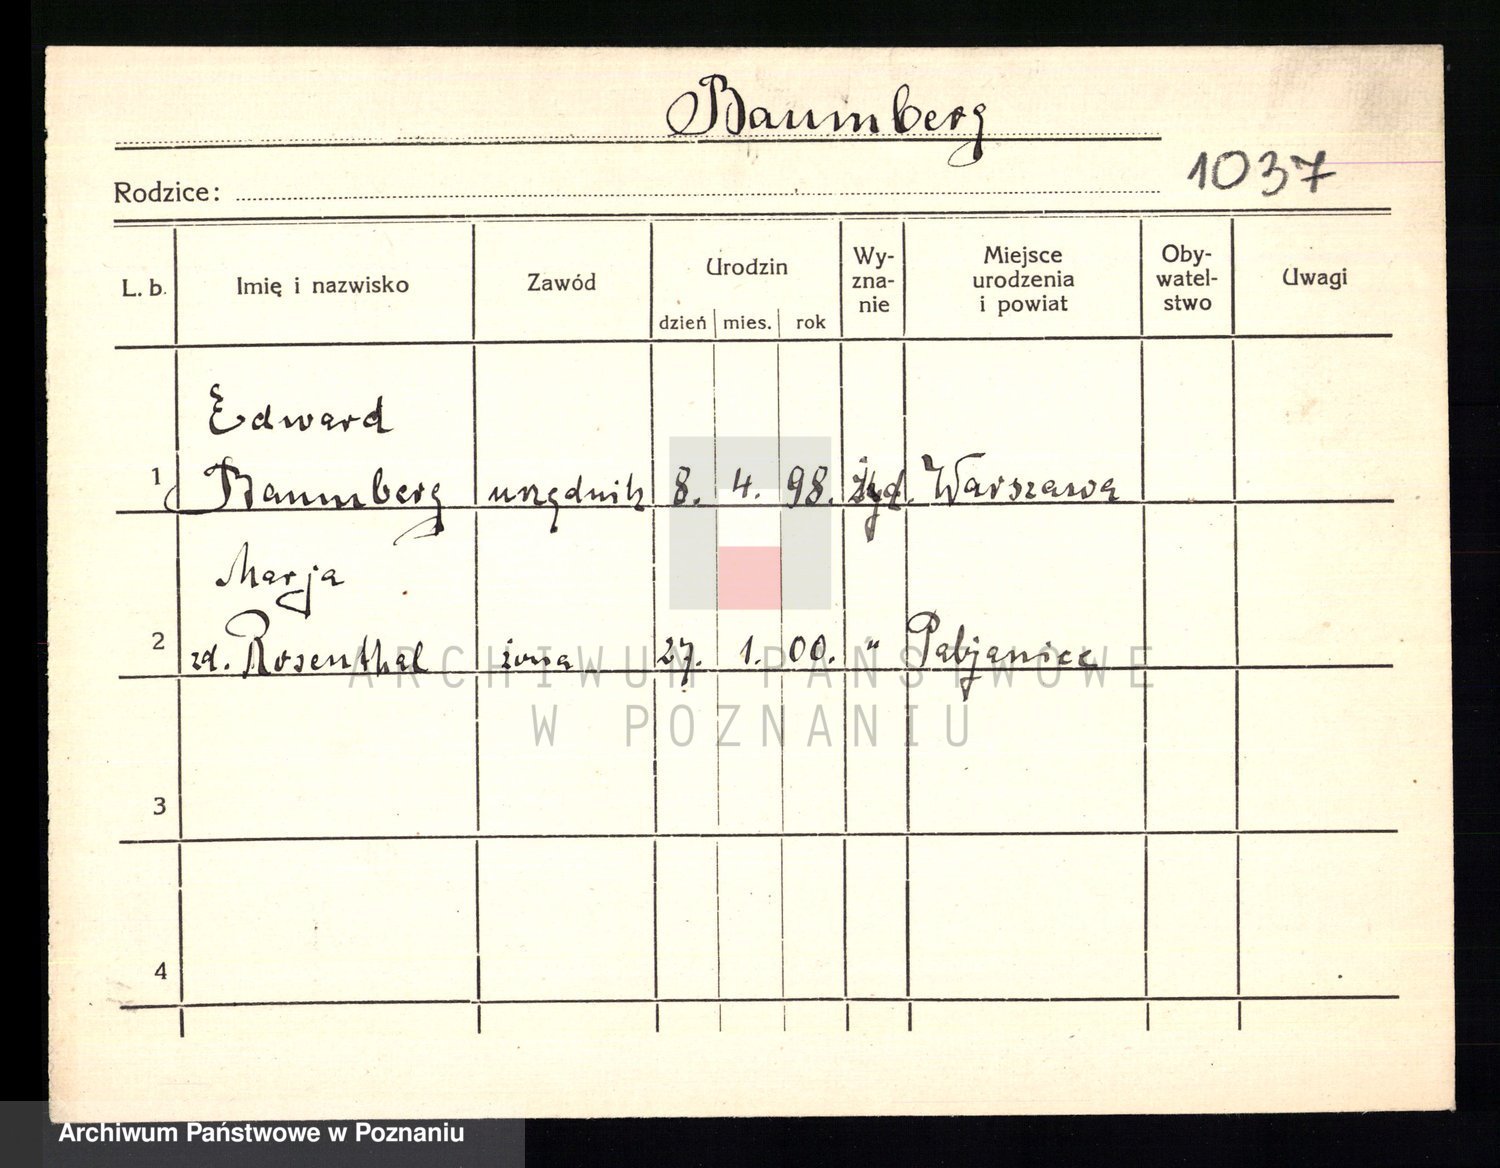 Baumberg
1037
Rodzice:
L. b. Imię i nazwisko Zawód Urodzin dzień mies. rok Wy-zna-nie Miejsce urodzenia i powiat Oby-watel-stwo Uwagi
Edward
1 Baumberg urzędnik 8. 4. 98. żyd. Warszawa
Marja
2 zd. Rosenthal żona 27. 1. 00. " Pabjanice
ARCHIWUM PAŃSTWOWE
W POZNANIU
3
4
Archiwum Państwowe w Poznaniu